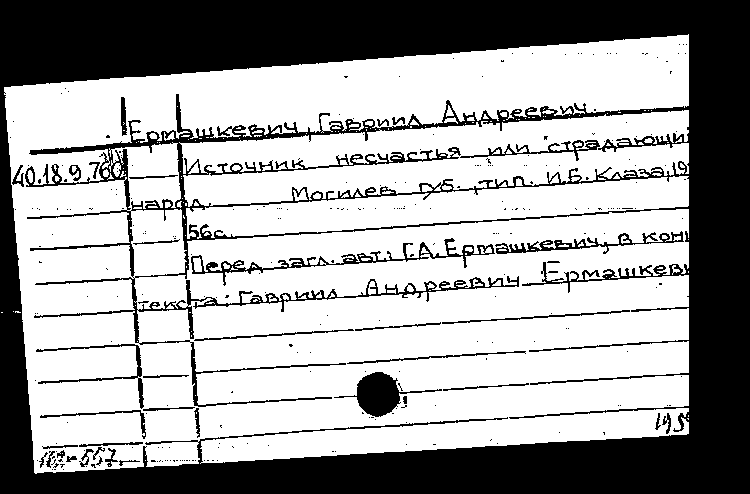 Ермашкевич, Гавриил Андреевич.
40.18.9.760 Источник несчастья или страдающи
народ. Могилев губ., тип. И.Б. Клаза, 19
56с.
Перед загл. авт.: Г.А. Ермашкевич, в кон
текста: Гавриил Андреевич Ермашкеви
557.
195